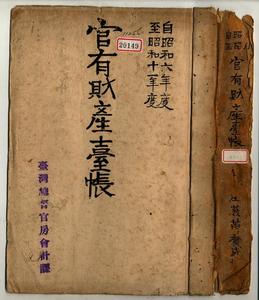 自昭和六年度
至昭和十一年度
20149
官有財產臺帳
臺灣總督官房會計課
官有財産臺帳